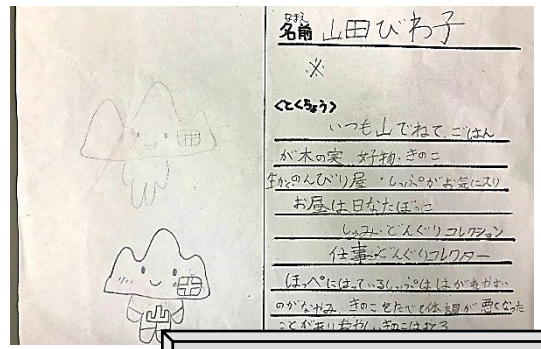 なまえ
名前 山田びわ子
※
〈とくちょう〉
いつも山でねて、ごはん
が木の実 好物・きのこ
のんびり屋・しっぷがお気に入り
お昼は日なたぼっこ
しゅみ・どんぐりコレクション
仕事・どんぐりコレクター
ほっぺにはっているしっぷははがれやすい
のがなやみ きのこをたべて体調が悪くなった
ことがあり
山